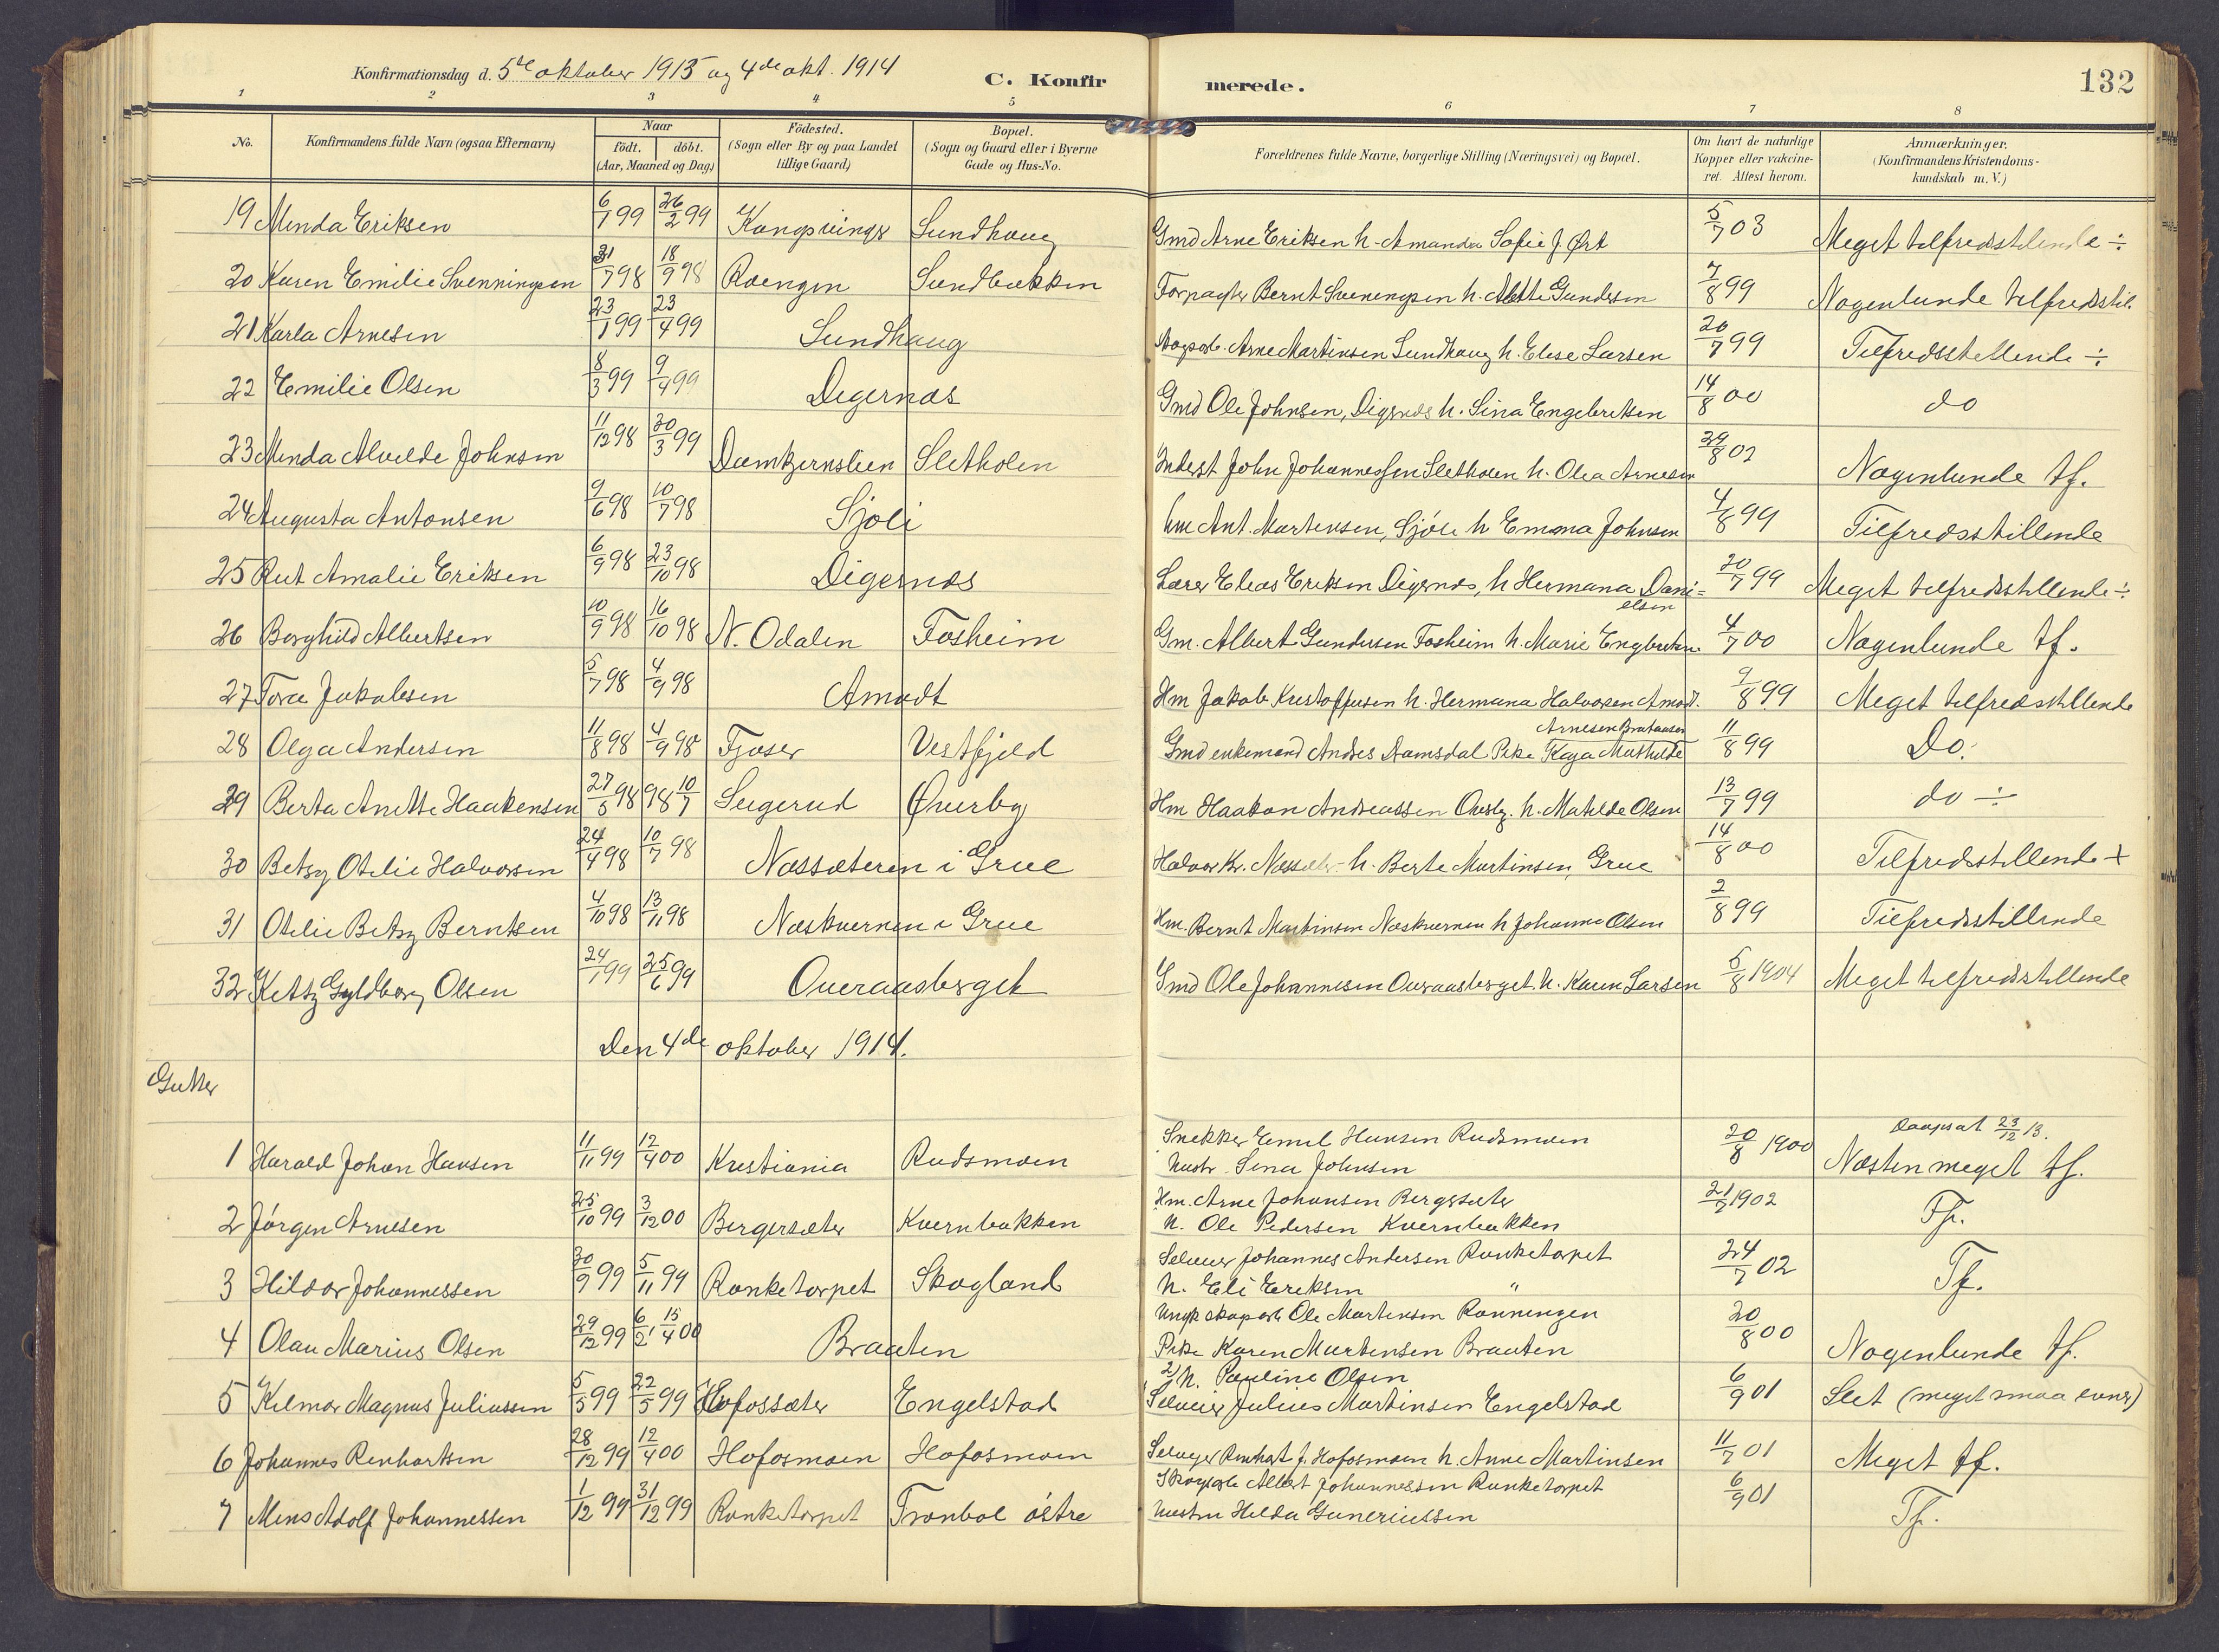 Konfirmationsdag d. 5te oktober 1913 og 4de okt. 1914
C. Konfirmerede.
132
1 2 3 4 5 6 7 8
No. Konfirmandens fulde Navn (ogsaa Efternavn) Naar födt. döbt. (Aar, Maaned og Dag) Födested. (Sogn eller By og paa Landet tillige Gaard) Bopæl. (Sogn og Gaard eller i Byerne Gade og Hus-No. Forældrenes fulde Navne, borgerlige Stilling (Næringsvei) og Bopæl. Om havt de naturlige Kopper eller vakcineret. Attest herom. Anmærkninger. (Konfirmandens Kristendomskundskab m. V.)
19 Minda Eriksen 6/1 99 26/2 99 Kongsvinger Sundhaug Gmd Arne Eriksen h. Amanda Sofie J. Ørt 5/7 03 Meget tilfredsstillende ÷
20 Karen Emilie Svenningsen 31/7 98 18/9 98 Roengen Sundbakken Forpagter Bernt Svenningsen h. Alette Gundersen 7/8 99 Nogenlunde tilfredsstil.
21 Karla Arnesen 23/1 99 23/4 99 Sundhaug Arne Martinsen Sundhaug h. Elise Larsen 20/7 99 Tilfredsstellende ÷
22 Emilie Olsen 8/3 99 9/4 99 Digernæs Gmd Ole Johnsen, Digernæs h. Sina Engebretsen 14/8 00 do
23 Minda Alvilde Johnsen 11/12 98 30/3 99 Damtjernslien Sletholen Inderst John Johannessen Sletholen h. Olea Arnesen 29/8 02 Nogenlunde tf.
24 Augusta Antonsen 9/6 98 10/7 98 Sjøli hm Ant. Martensen, Sjöli h Emma Johnsen 4/8 99 Tilfredsstillende
25 Rut Amalie Eriksen 6/9 98 23/10 98 Digernæs Lærer Elias Eriksen Digernæs, h Hermana Dani=
elsen 20/7 99 Meget tilfredsstillende ÷
26 Borghild Albertsen 10/9 98 16/10 98 N. Odalen Fosheim Gm. Albert Gundersen Fosheim h. Marie Engbretsen 4/7 00 Nogenlunde tf.
27 Tora Jakobsen 5/7 98 4/9 98 Amodt Hm Jakob Kristoffersen h. Hermana Halvorsen Amodt. 9/8 99 Meget tilfredsstillende
28 Olga Andersen 11/8 98 4/9 98 Tjoser Vestfjeld Gmd enkemand Andres Damsdal Pike Kaja Mathilde
Arnesen Brataasen 11/8 99 Do.
29 Berta Anette Haakensen 27/5 98 98 10/7 Seigerud Øverby Hm Haakon Andreassen Øverby. h. Matilde Olsen 13/7 99 do ÷
30 Betsy Otilie Halvorsen 24/4 98 10/7 98 Næssæteren i Grue Halvor Kr. Næssæter h. Berte Martinsen, Grue 14/8 00 Tilfredsstillende +
31 Otilie Betsy Berntsen 4/10 98 13/11 98 Næskvernen i Grue Hm. Bernt Martinsen Næskvernen h Johanne Olsen 2/8 99 Tilfredsstillende
32 Ketty Gyldborg Olsen 24/1 99 25/6 99 Overaasberget Gmd Ole Johannesen Overaasberget. h. Karen Larsen 5/8 1904 Meget tilfredsstillende
Den 4de oktober 1914.
Gutter
1 Harald Johan Hansen 11/11 99 12/4 00 Kristiania Rudsmoen Snekker Emil Hansen Rudsmoen
hustr. Sina Johnsen 20/8 1900 Daapsat 23/12 13.
Næsten meget tf.
2 Jörgen Arnesen 25/10 99 3/12 00 Bergersæter Kvernbakken Hm. Arne Johansen Bergersæter
h. Ole Pedersen Kvernbakken 21/7 1902 Tf.
3 Hildor Johannessen 30/9 99 5/11 99 Ronketorpet Skogland Seleier Johannes Andersen Ronketorpet
h. Eli Eriksen " 24/7 02 Tf.
4 Olau Marius Olsen 29/12 99 6/2, 15/4 00 Braaten Ungk skogarb Ole Martinsen Rønningen
Pike Karen Martinsen Braaten 20/8 00 Nogenlunde tf.
5 Hilmar Magnus Juliussen 5/5 99 22/5 99 Hofossæter Engelstad 2/ h. Pauline Olsen
Seleier Julius Martinsen Engelstad 6/9 01 Slet (meget smaa evner)
6 Johannes Renhartsen 28/12 99 12/4 00 Hofosmoen Hofosmoen Seleyer Renhart J. Hofosmoen h. Anne Martinsen 11/7 01 Meget tf.
7 Mens Adolf Johannessen 1/12 99 31/12 99 Ronketorpet Tronbøl östre Skogarb Albert Johannessen Ronketorpet
hustru Hilda Guneriussen 6/9 01 Tf.